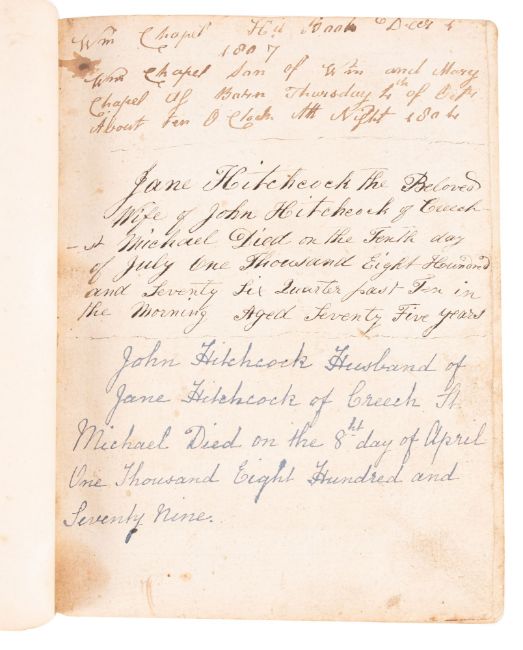 Wm Chapel His Book Decr 5
1807
Wm Chapel Son of Wm and Mary
Chapel of Born Thursday 4th of Octr
About ten O Clock Att Night 1804
Jane Hitchcock the Beloved
Wife of John Hitchcock of Creech
St Michael Died on the Tenth day
of July One Thousand Eight Hundred
and Seventy Six Quarter past Ten in
the Morning Aged Seventy Five years
John Hitchcock Husband of
Jane Hitchcock of Creech St
Michael Died on the 8th day of April
One Thousand Eight Hundred and
Seventy Nine.